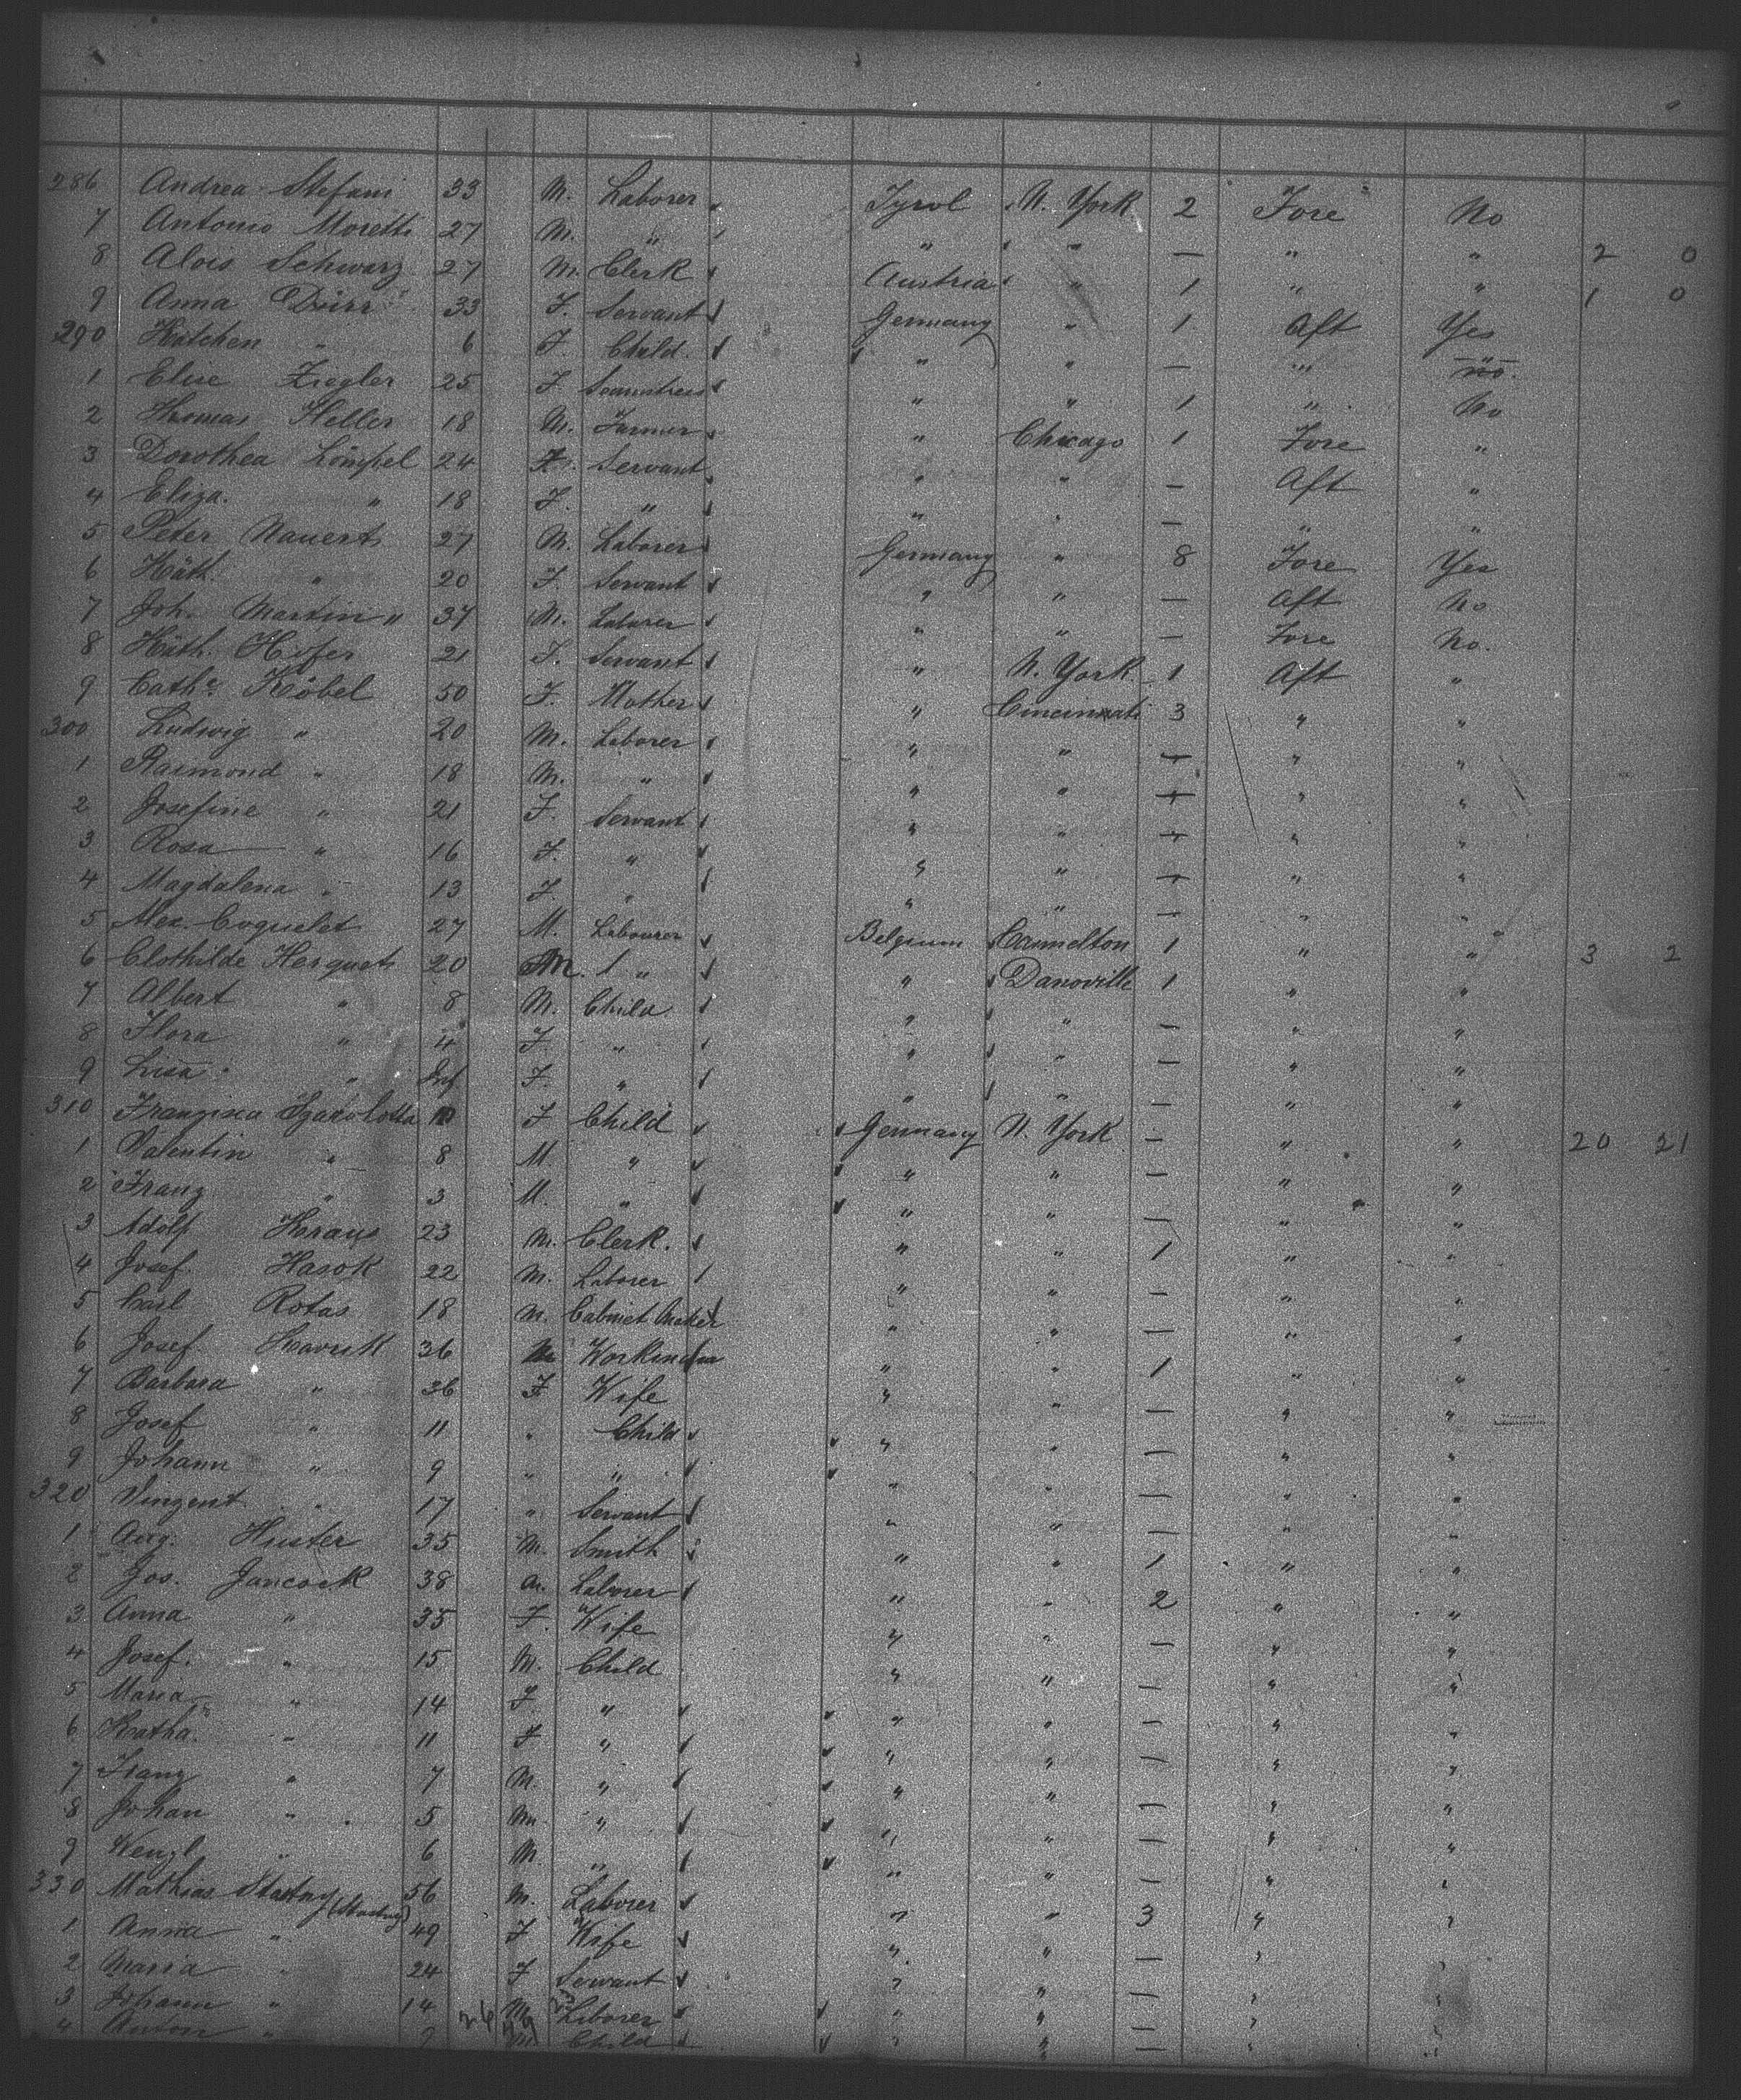 286 Andrea Stefani 33 M. Laborer Tyrol N. York 2 Fore No
7 Antonio Moretti 27 M. " " " — " " 2 0
8 Alois Schwarz 27 M. Clerk Austria " 1 " " 1 0
9 Anna Dürr 33 F. Servant Germany " 1 Aft Yes
290 Kätchen " 6 F. Child. " " — " no.
1 Elise Ziegler 25 F. Seamstress " " 1 " No
2 Thomas Heller 18 M. Farmer " Chicago 1 Fore "
3 Dorothea Lömpel 24 F. Servant " " — Aft "
4 Eliza. " 18 F. " " " — " "
5 Peter Nauert 27 M. Laborer Germany " 8 Fore Yes
6 Käth. " 20 F. Servant " " — Aft No
7 Joh. Martin " 37 M. Laborer " " — Fore No.
8 Käth. Hofer 21 F. Servant " N. York 1 Aft "
9 Cathe. Köbel 50 F. Mother " Cincinnati 3 " "
300 Ludwig " 20 M. Laborer " " — " "
1 Raimond " 18 M. " " " — " "
2 Josefine " 21 F. Servant " " — " "
3 Rosa " 16 F. " " " — " "
4 Magdalena " 13 F. " " " — " "
5 Alex. Coquelet 27 M. Labourer Belgium Cannelton 1 " " 3 2
6 Clothilde Hesquet 20 M. " " Danoville 1 " "
7 Albert " 8 M. Child " " — " "
8 Flora " 4 F. " " " — " "
9 Lisa " Inf F. " " " — " "
310 Franzisca F Child Germany N. York — " " 20 21
1 Valentin " 8 M. " " " — " "
2 Franz " 3 M. " " " — " "
3 Adolf Kraus 23 M. Clerk. " " 1 " "
4 Josef Hasok 22 M. Laborer " " — " "
5 Carl Rotas 18 M. Cabinet Maker " " — " "
6 Josef Havrik 36 M Workman " " 1 " "
7 Barbara " 36 F. Wife " " — " "
8 Josef " 11 " Child " " — " "
9 Johann " 9 " " " " — " "
320 Vinzent " 17 " Servant " " — " "
1 Aug. Huster 35 M. Smith " " 1 " "
2 Jos. Jancock 38 M. Laborer " " 2 " "
3 Anna " 35 F. Wife " " — " "
4 Josef. " 15 M. Child " " — " "
5 Maria " 14 F. " " " — " "
6 Katha. " 11 F " " " — " "
7 Franz " 7 M. " " " — " "
8 Johan " 5 M. " " " — " "
9 Wenzl " 6 M. " " " — " "
330 Mathias Stastny 56 M. Laborer " " 3 " "
1 Anna " 49 F Wife " " — " "
2 Maria " 24 F Servant " " — " "
3 Johann " 14 M. Laborer " " — " "
4 Anton " 9 M. Child " " — " "